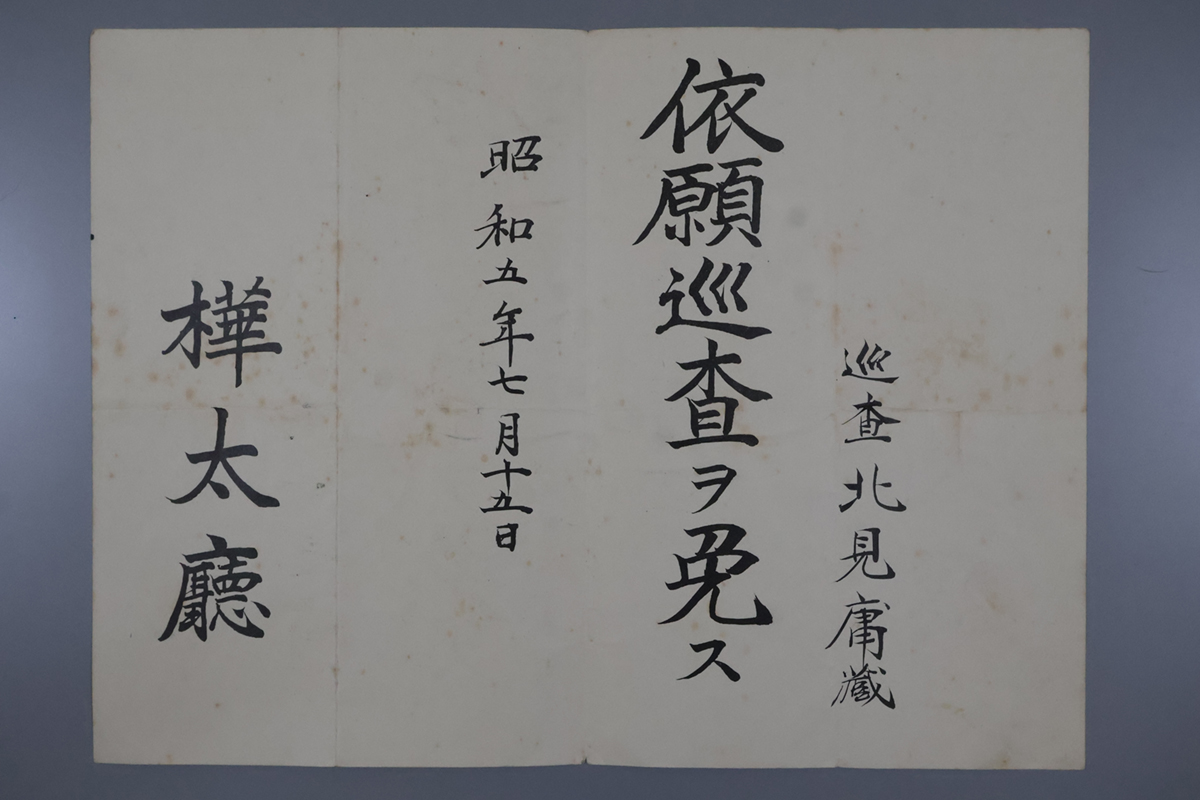 巡查北見庸藏
依願巡査ヲ免ス
昭和五年七月十五日
樺太廳